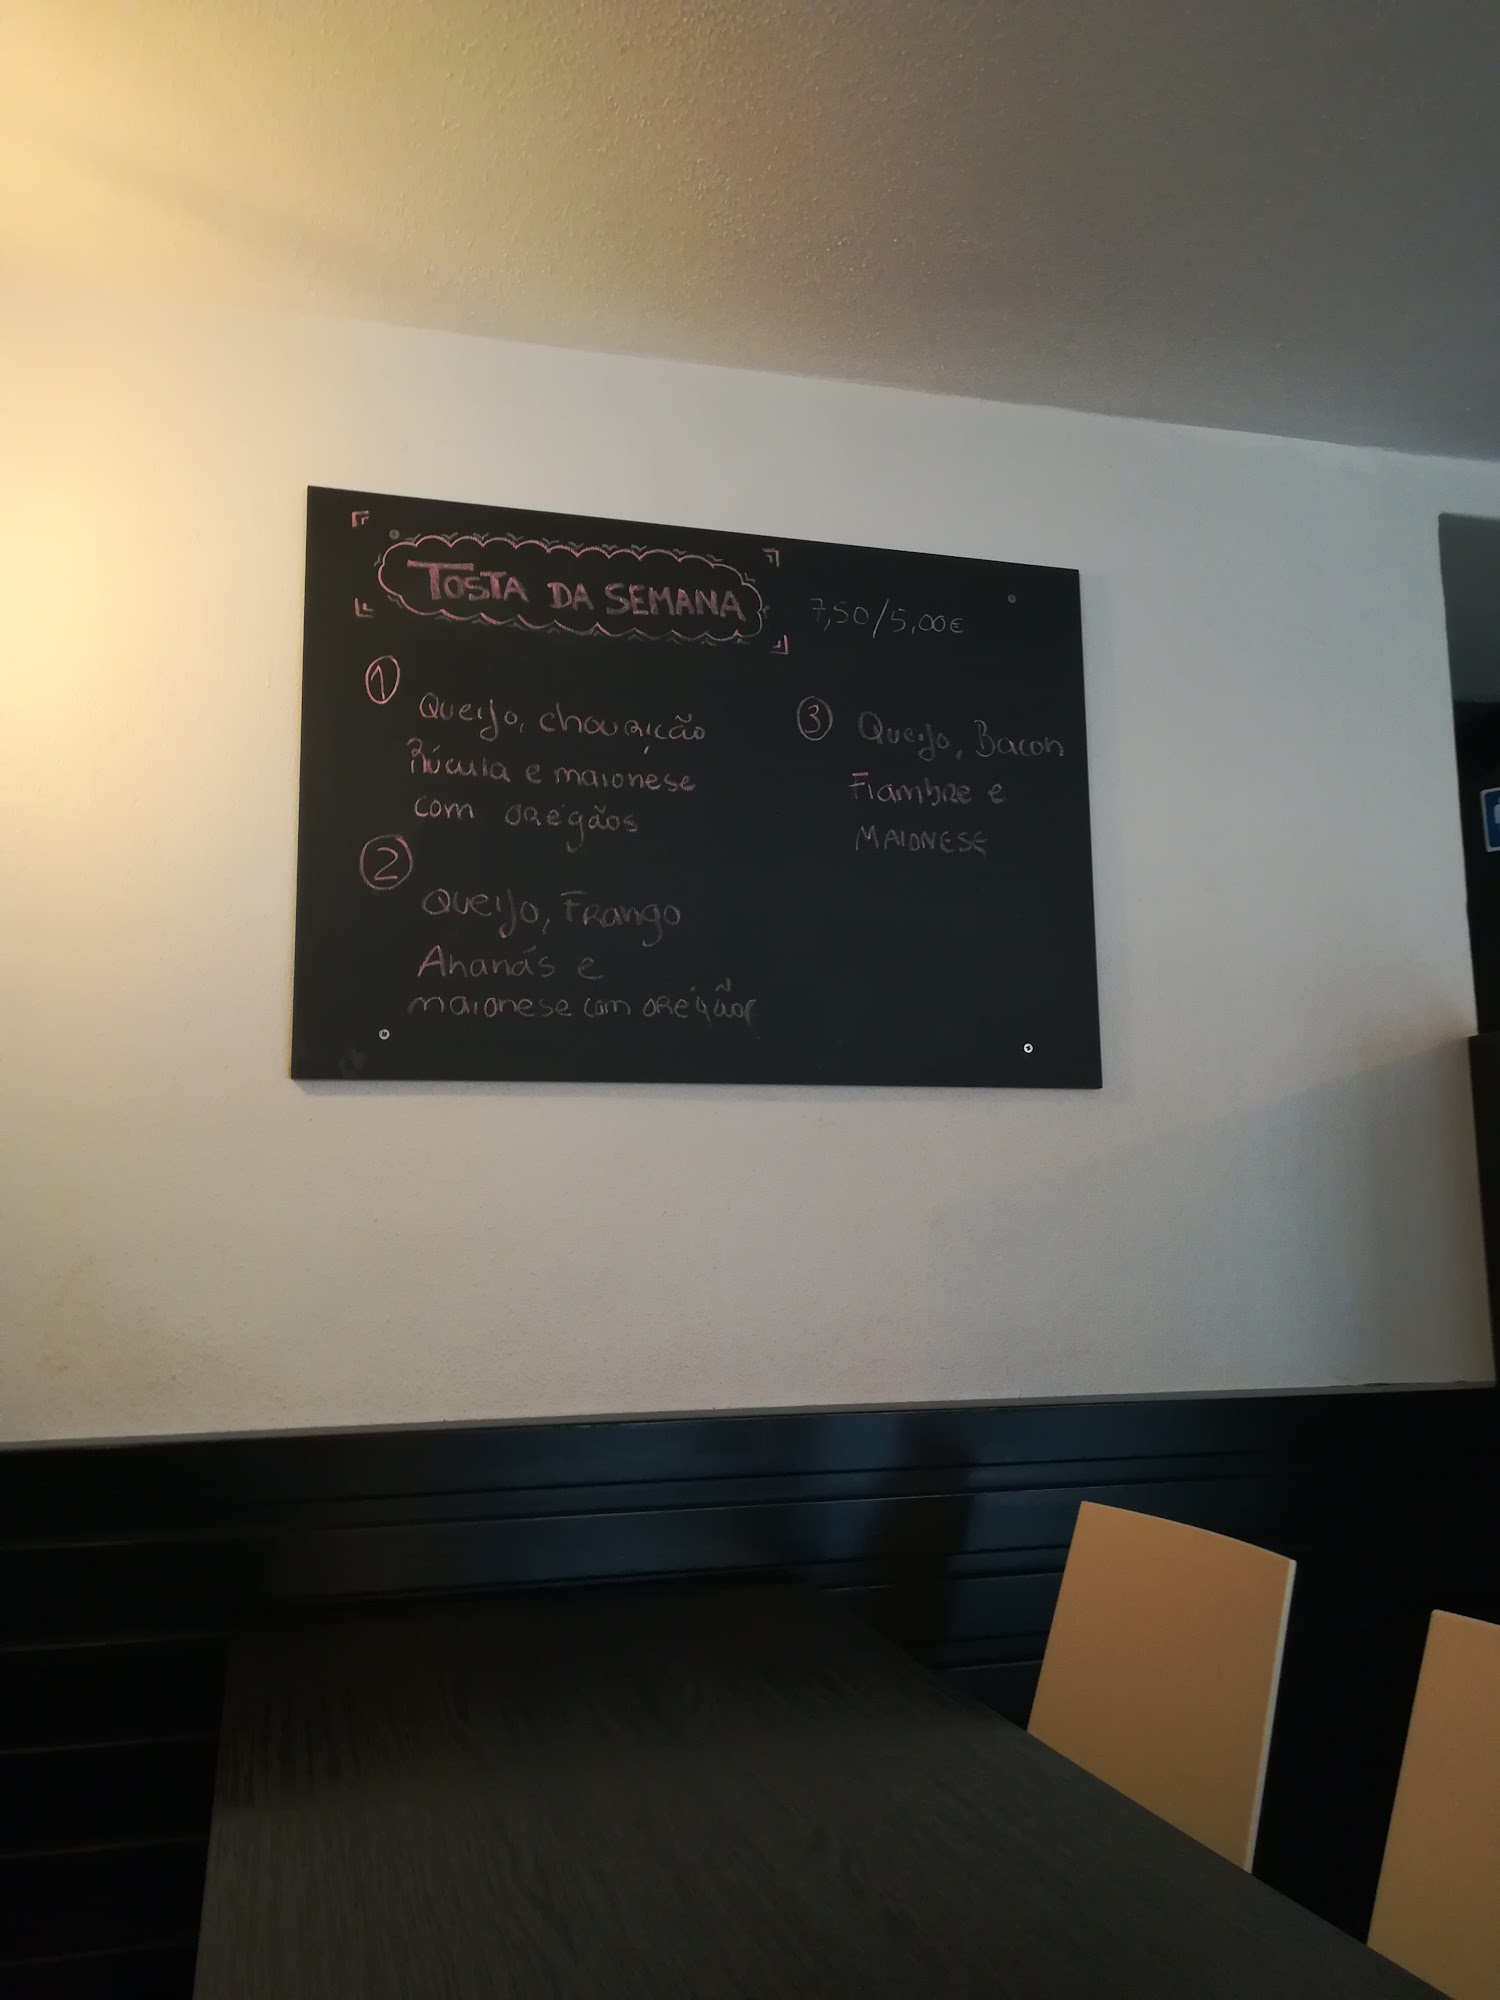 TOSTA DA SEMANA
7,50/5,00€
1
Queijo, chouricão
Rúcula e maionese
com orégãos
2
Queijo, Frango
Ananás e
maionese com orégãos
3
Queijo, Bacon
Fiambre e
MAIONESE